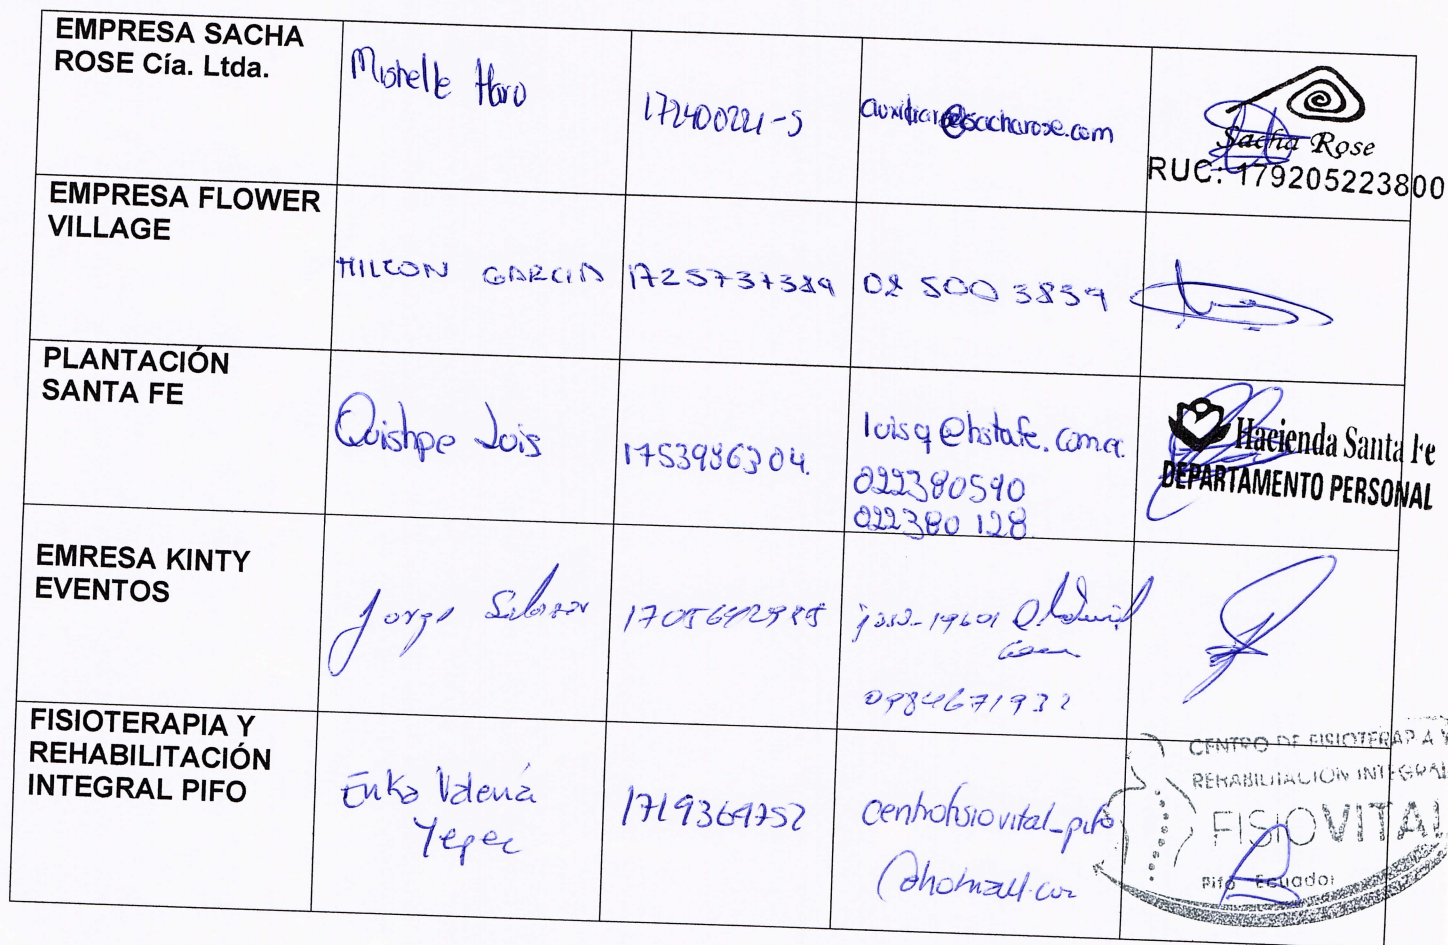 EMPRESA SACHA
ROSE Cía. Ltda.
Mishelle Haro
auxiliar@sacharose.com
Sacha Rose
RUC: 179205223800
EMPRESA FLOWER
VILLAGE
MILTON GARCIA
1725737389
02 500 3839
PLANTACIÓN
SANTA FE
Quishpe Luis
1753986304.
luisq@hstafe.com
022380590
022380 128
Hacienda Santa Fe
DEPARTAMENTO PERSONAL
EMRESA KINTY
EVENTOS
Jorge Salazar
0984671932
FISIOTERAPIA Y
REHABILITACIÓN
INTEGRAL PIFO
Erika Valeria
Yepez
1719369752
centrofisiovital_pifo
@hotmail.com
CENTRO DE FISIOTERAPIA Y
REHABILITACION INTEGRAL
FISIOVITAL
Pifo - Ecuador